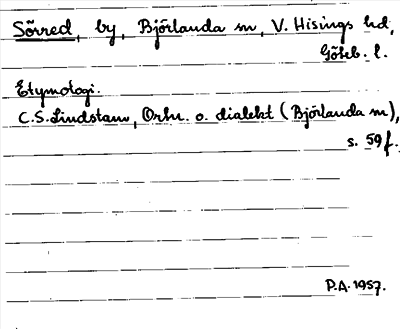 Sörred, by, Björlanda sn, V. Hisings hd,
Göteb. l.
Etymologi.
C.S. Lindstam, Ortn. o. dialekt (Björlanda sn),
s. 59 f.
P.A. 1957.